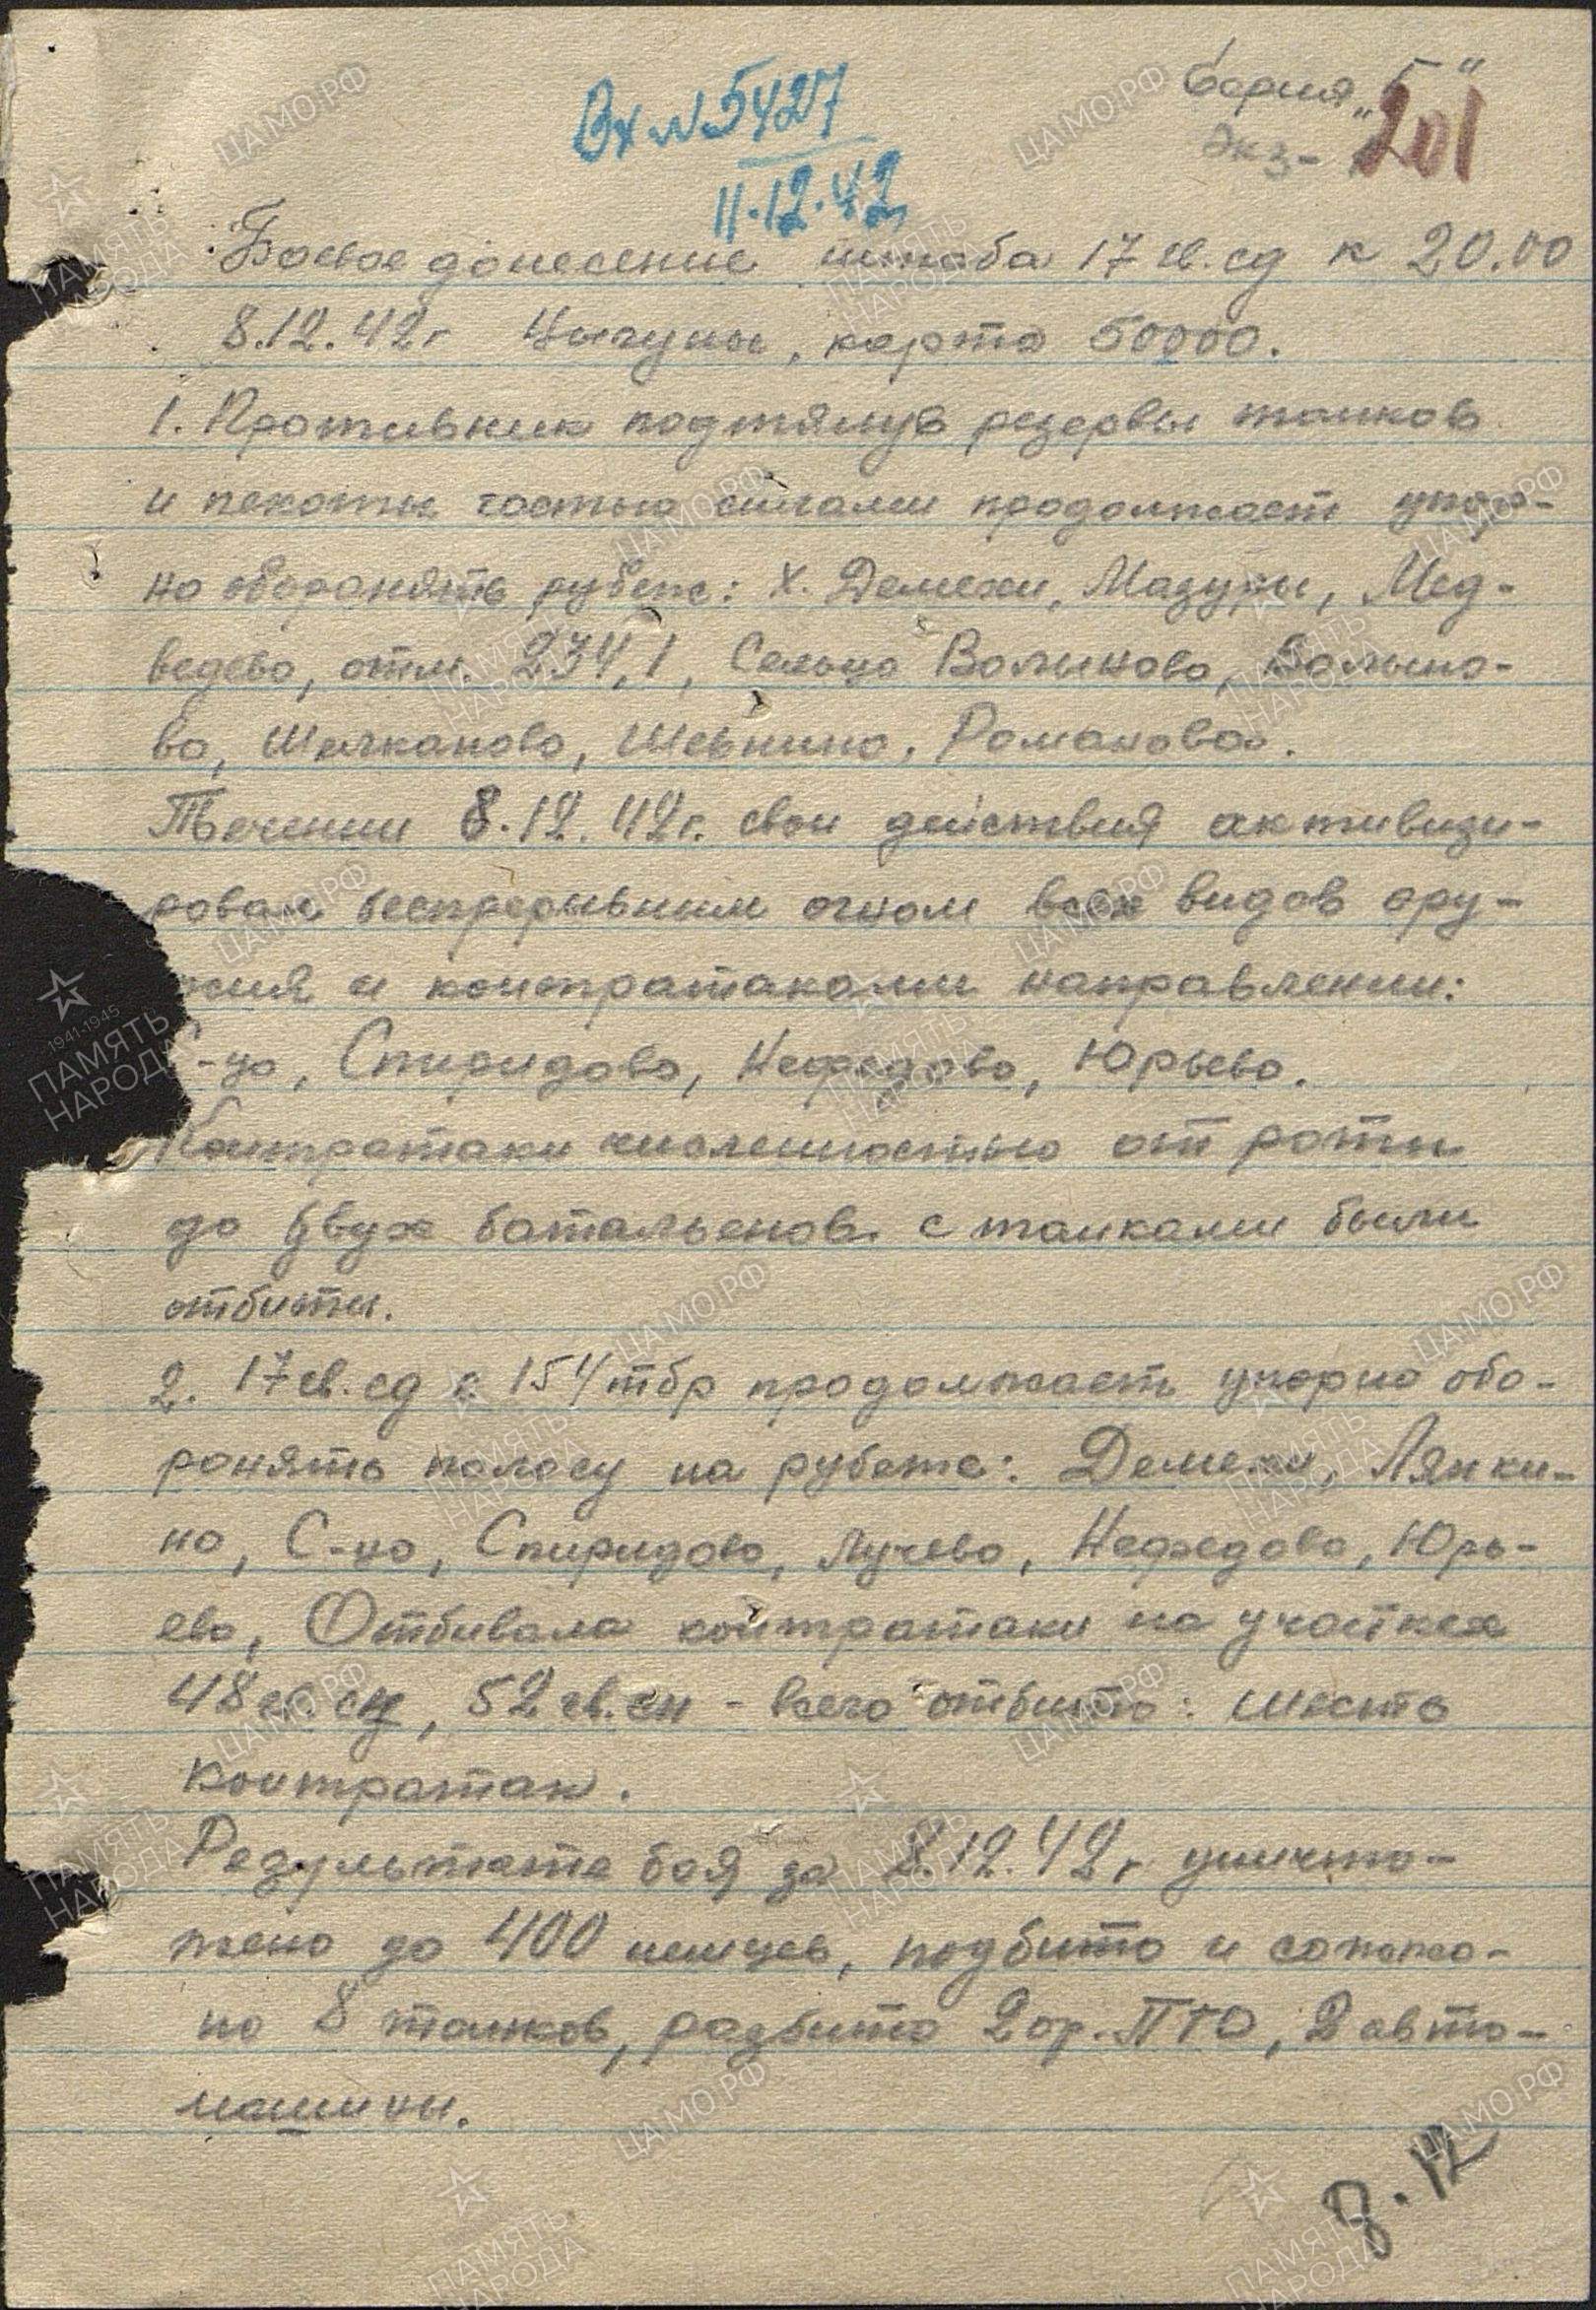 Серия „Б"
Вх №5427
Экз- 201
11.12.42
Боевое донесение штаба 17 гв. сд к 20.00
8.12.42г Цыгуны, карта 50000.
1. Противник подтянув резервы танков
и пехоты частью силами продолжает упор-
но оборонять рубеж: х. Демехи, Мазуры, Мед-
ведево, отм. 234,1, Сельцо Волыново, Волыно-
во, Шелканово, Шевнино, Романово.
Течении 8.12.42г. свои действия активизи-
ровал беспрерывным огнем всех видов ору-
жия и контратаками направлении:
С-цо, Спиридово, Нефедово, Юрьево.
Контратаки численностью от роты
до двух батальенов с танками были
отбиты.
2. 17 гв. сд с 154 тбр продолжает упорно обо-
ронять полосу на рубеже: Демехи, Ляпки-
но, С-цо, Спиридово, Лучево, Нефедово, Юрь-
ево, Отбивала контратаки на участках
48 гв. сп, 52 гв. сп - всего отбито: шесть
контратак.
Результате боя за 8.12.42г. уничто-
жено до 400 немцев, подбито и сожже-
но 8 танков, разбито 2 ор. ПТО, 2 авто-
машины.
8.12